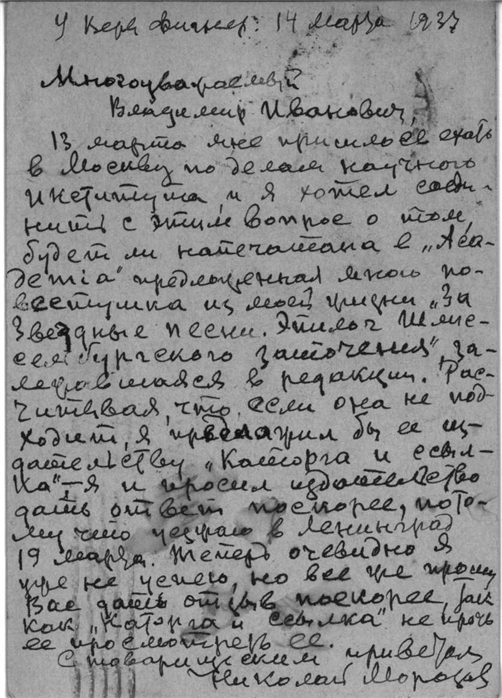 У Веры Фигнер. 14 марта 1937
Многоуважаемый
Владимир Иванович,
13 марта мне пришлось ехать
в Москву по делам научного
института, и я хотел соеди-
нить с этим вопрос о том,
будет ли напечатана в „Аса-
demia" предложенная мною по-
вестушка из моей жизни „За
Звездные песни. Эпилог Шлис-
сельбургского заточения", за-
лежавшаяся в редакции. Рас-
читывая, что, если она не под-
ходит, я предложил бы ее из-
дательству „Каторга и ссыл-
ка" — я и просил издательство
дать ответ поскорее, пото-
му что уезжаю в Ленинград
19 марта. Теперь очевидно я
уже не успею, но все же прошу
Вас дать отзыв поскорее, так
как „Каторга и ссылка" не прочь
ее просмотреть.
С товарищеским приветом
Николай Морозов